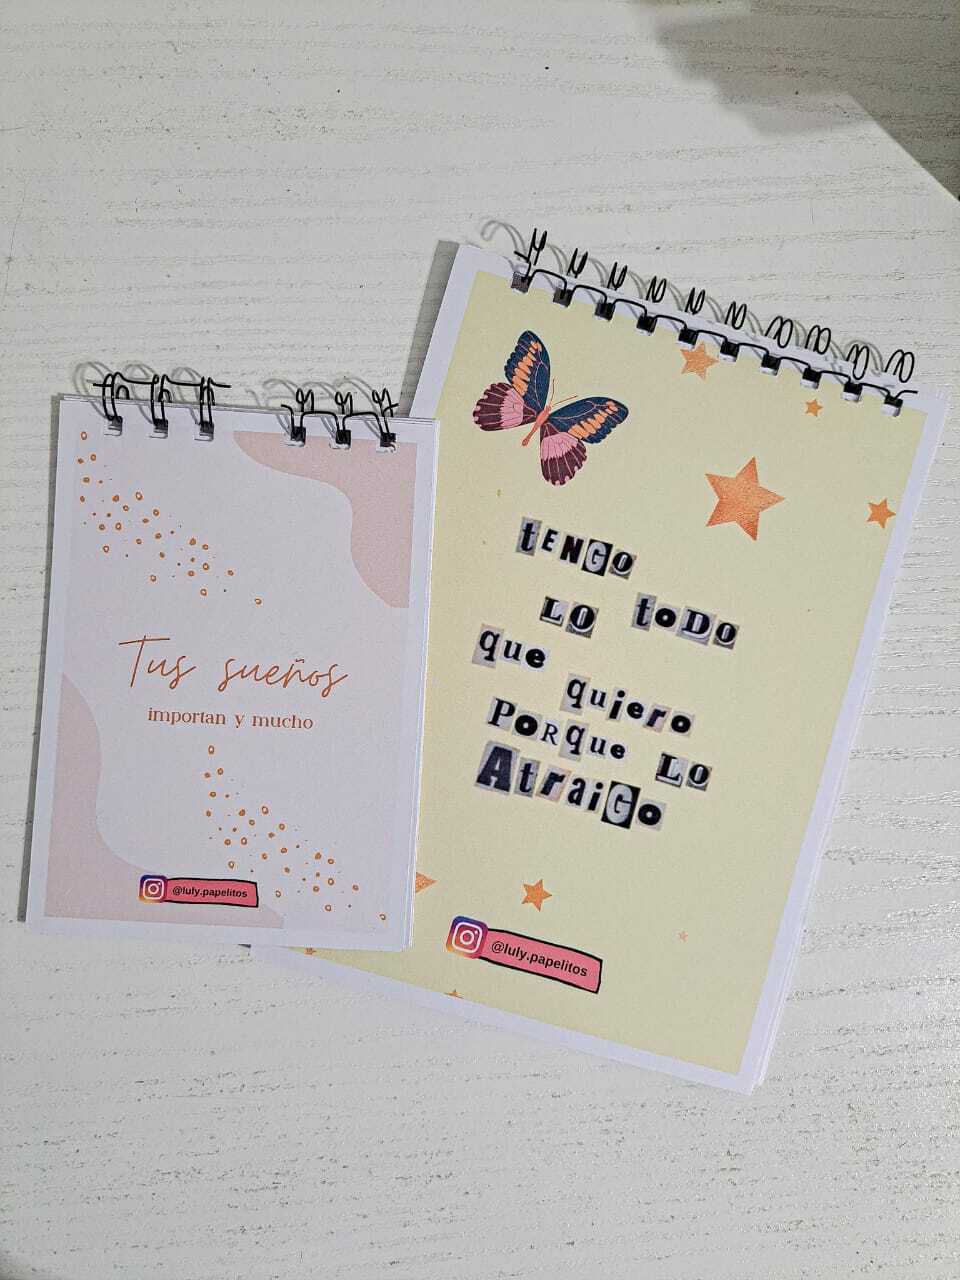 Tus sueños
importan y mucho
@luly.papelitos
tENGO
LO toDO
que quiero
PORque LO
AtraiGo
@luly.papelitos